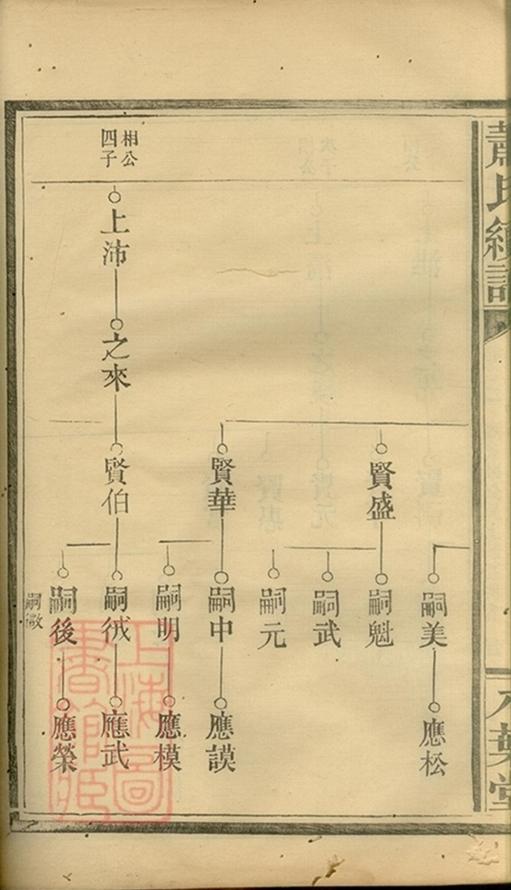 蕭氏續譜
八葉堂
嗣美
應松
賢盛
嗣魁
嗣武
嗣元
賢華
嗣中
應謨
嗣明
應模
相公
四子
上沛
之來
賢伯
嗣㧕
應武
嗣後
應榮
嗣徵
上海圖書館藏